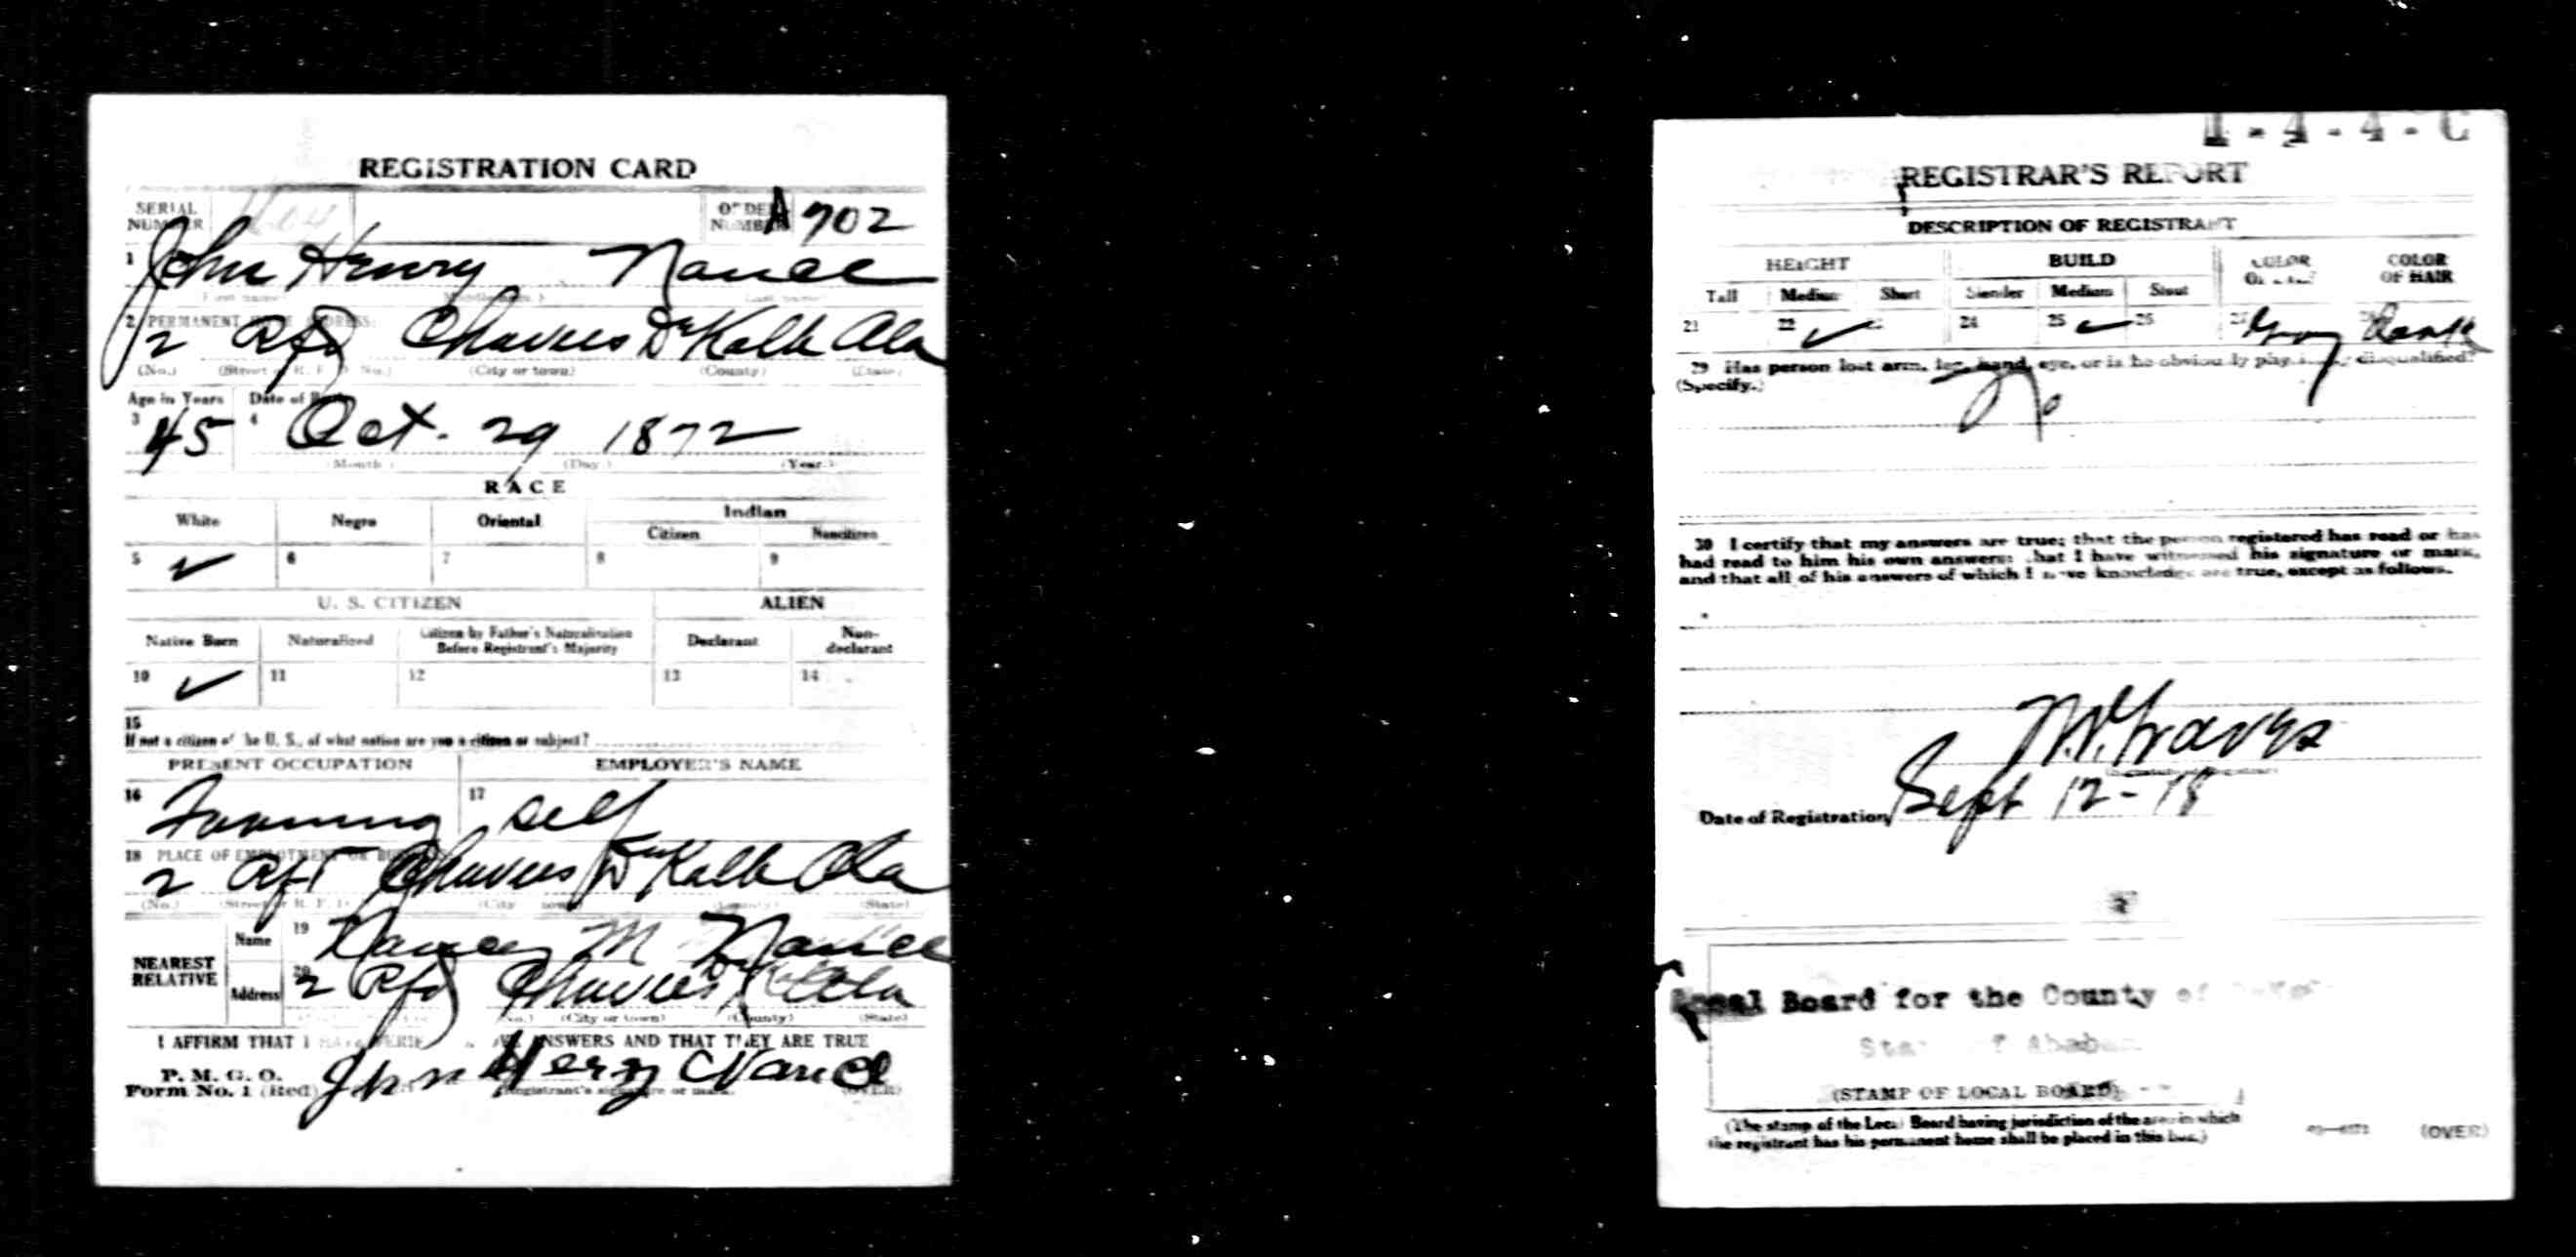 REGISTRATION CARD
SERIAL NUMBER
ORDER NUMBER A 702
1 John Henry Nance
2 PERMANENT HOME ADDRESS:
2 Rfd Chavies DeKalb Ala
(No.) (Street or R. F. D. No.) (City or town) (County) (State)
Age in Years Date of Birth
3 45 4 Oct. 29 1872
(Month) (Day) (Year)
RACE
White Negro Oriental Indian
Citizen Noncitizen
5 ✓ 6 7 8 9
U. S. CITIZEN ALIEN
Native Born Naturalized Citizen by Father's Naturalization Before Registrant's Majority Declarant Non-declarant
10 ✓ 11 12 13 14
15
If not a citizen of the U. S., of what nation are you a citizen or subject?
PRESENT OCCUPATION EMPLOYER'S NAME
16 Farming 17 Self
18 PLACE OF EMPLOYMENT OR BUSINESS:
2 Rfd Chavies DeKalb Ala
(No.) (Street or R. F. D. No.) (City or town) (County) (State)
NEAREST RELATIVE
Name 19 Nancy M Nance
Address 20 2 Rfd Chavies DeK Ala
(No.) (City or town) (County) (State)
I AFFIRM THAT I HAVE VERIFIED ABOVE ANSWERS AND THAT THEY ARE TRUE
P. M. G. O.
Form No. 1 (Red) John Henry Nance
(Registrant's signature or mark) (OVER)
1-4-4-C
REGISTRAR'S REPORT
DESCRIPTION OF REGISTRANT
HEIGHT BUILD COLOR OF EYES COLOR OF HAIR
Tall Medium Short Slender Medium Stout
21 22 ✓ 23 24 25 ✓ 26 27 Gray 28 Dark
29 Has person lost arm, leg, hand, eye, or is he obviously physically disqualified?
(Specify.) No
30 I certify that my answers are true; that the person registered has read or has
had read to him his own answers; that I have witnessed his signature or mark,
and that all of his answers of which I have knowledge are true, except as follows.
Graves
(Signature of Registrar)
Date of Registration Sept 12-18
Local Board for the County of
State of Alabama
(STAMP OF LOCAL BOARD)
(The stamp of the Local Board having jurisdiction of the area in which
the registrant has his permanent home shall be placed in this box.)
(OVER)